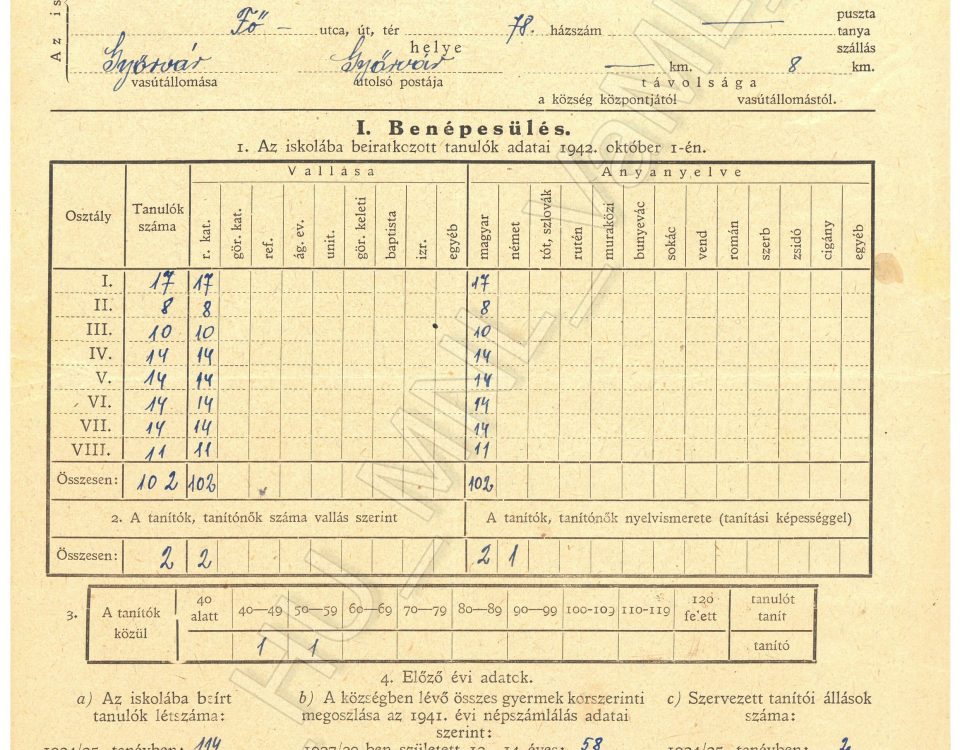 Az is
Fő – utca, út, tér 78. házszám — puszta
tanya
helye szállás
Győrvár Győrvár — km. 8 km.
vasútállomása utolsó postája távolsága
a község központjától vasútállomástól.
I. Benépesülés.
1. Az iskolába beiratkozott tanulók adatai 1942. október 1-én.
Osztály Tanulók száma Vallása Anyanyelve
r. kat. gör. kat. ref. ág. ev. unit. gör. keleti baptista izr. egyéb magyar német tót, szlovák rutén muraközi bunyevác sokác vend román szerb zsidó cigány egyéb
I. 17 17 17
II. 8 8 8
III. 10 10 10
IV. 14 14 14
V. 14 14 14
VI. 14 14 14
VII. 14 14 14
VIII. 11 11 11
Összesen: 102 102 102
2. A tanítók, tanítónők száma vallás szerint A tanítók, tanítónők nyelvismerete (tanítási képességgel)
Összesen: 2 2 2 1
3. A tanítók közül 40 alatt 40—49 50—59 60—69 70—79 80—89 90—99 100-109 110-119 120 felett tanulót tanít
1 1 tanító
4. Előző évi adatok.
a) Az iskolába beírt b) A községben lévő összes gyermek korszerinti c) Szervezett tanítói állások
tanulók létszáma: megoszlása az 1941. évi népszámlálás adatai száma:
szerint:
tanévben: 114 ben született 58 tanévben: 2
HU_MNL_VaML